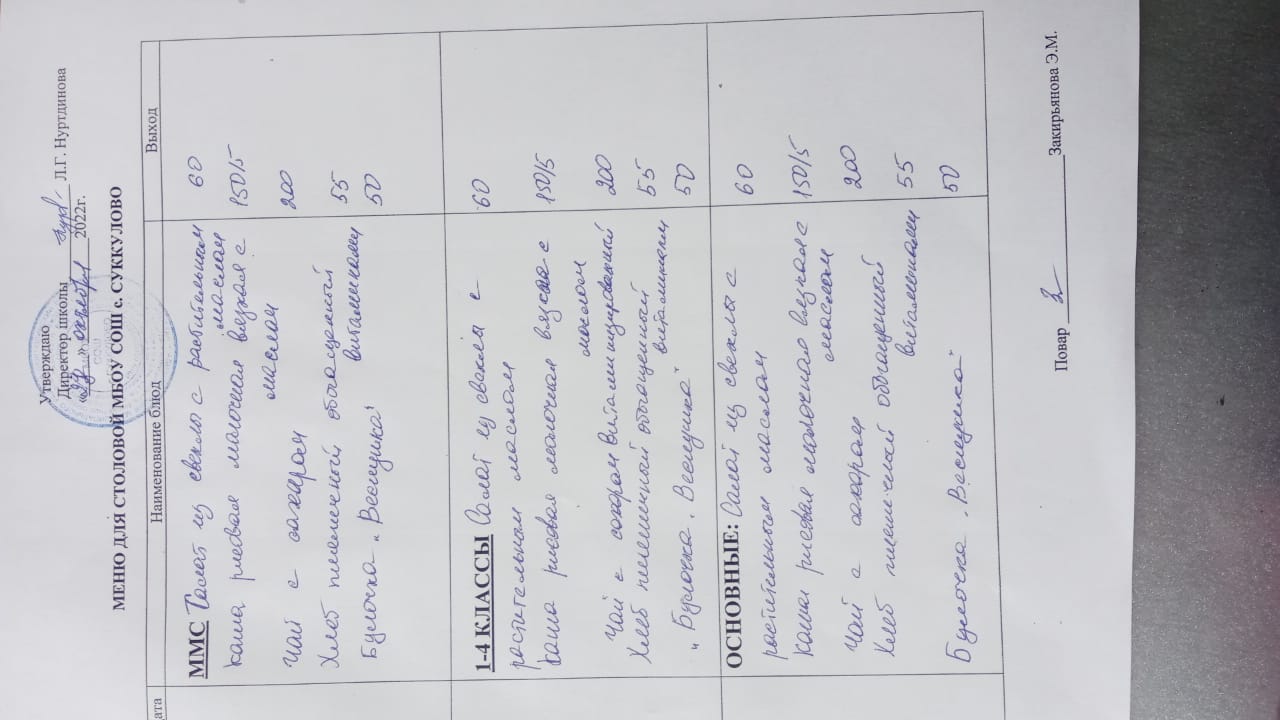 Утверждаю
Директор школы Л.Г. Нуртдинова
« » октября 2022г.
МЕНЮ ДЛЯ СТОЛОВОЙ МБОУ СОШ с. СУККУЛОВО
ата Наименование блюд Выход
ММС Салат из свеклы с растительным 60
маслом
каша рисовая молочная вязкая с 150/5
маслом
Чай с сахаром 200
Хлеб пшеничный обогащенный 55
витаминами
Булочка „Веснушка" 50
1-4 КЛАССЫ Салат из свеклы с 60
растительным маслом
каша рисовая молочная вязкая с 150/5
маслом
Чай с сахаром витаминизированный 200
Хлеб пшеничный обогащенный 55
витаминами
„Булочка „Веснушка" 50
ОСНОВНЫЕ: Салат из свеклы с 60
растительным маслом
Каша рисовая молочная вязкая с 150/5
маслом
Чай с сахаром 200
Хлеб пшеничный обогащенный 55
витаминами
Булочка „Веснушка" 50
Повар Закирьянова Э.М.